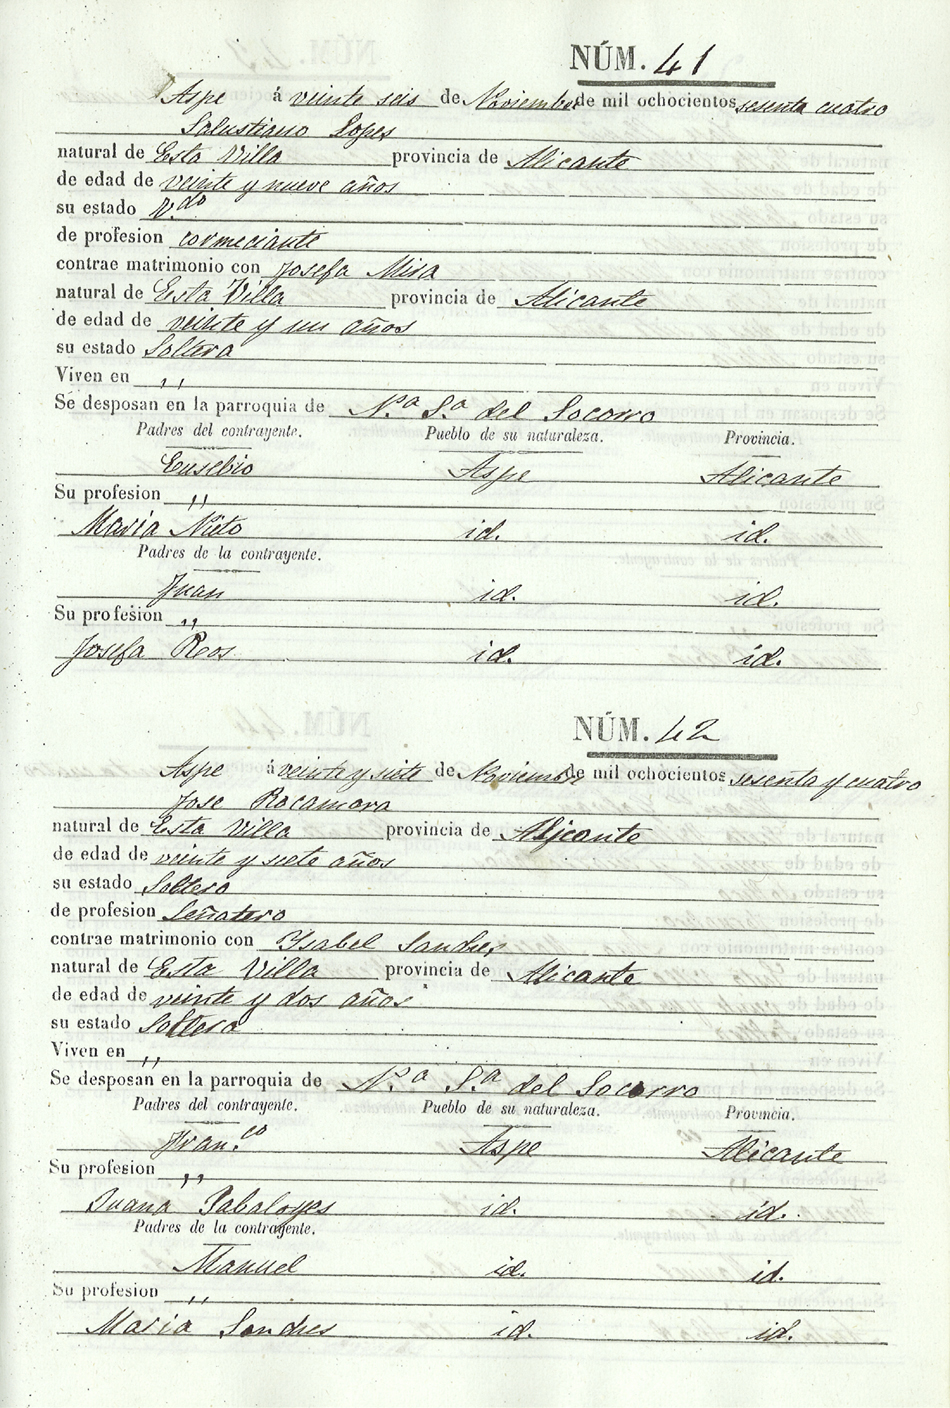 NÚM. 41
Aspe á veinte seis de Noviembre de mil ochocientos sesenta cuatro
Salustiano Lopes
natural de Esta Villa provincia de Alicante
de edad de veinte y nueve años
su estado V.do
de profesion cormeciante
contrae matrimonio con Josefa Mira
natural de Esta Villa provincia de Alicante
de edad de veinte y un años
su estado Soltera
Viven en ,,
Se desposan en la parroquia de N.a S.a del Socorro
Padres del contrayente. Pueblo de su naturaleza. Provincia.
Eusebio Aspe Alicante
Su profesion ,,
Maria Nieto id. id.
Padres de la contrayente.
Juan id. id.
Su profesion ,,
Josefa Reos id. id.
NÚM. 42
Aspe á veinte y siete de Noviembre de mil ochocientos sesenta y cuatro
Jose Rocamora
natural de Esta Villa provincia de Alicante
de edad de veinte y siete años
su estado Soltero
de profesion Señatero
contrae matrimonio con Ysabel Sandres
natural de Esta Villa provincia de Alicante
de edad de veinte y dos años
su estado Soltera
Viven en ,,
Se desposan en la parroquia de N.a S.a del Socorro
Padres del contrayente. Pueblo de su naturaleza. Provincia.
Fran.co Aspe Alicante
Su profesion ,,
Juana Pabaloyes id. id.
Padres de la contrayente.
Manuel id. id.
Su profesion ,,
Maria Sandres id. id.